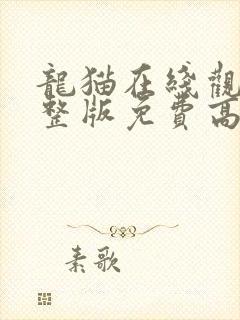 龍猫在綫觀
整版免費高
素歌